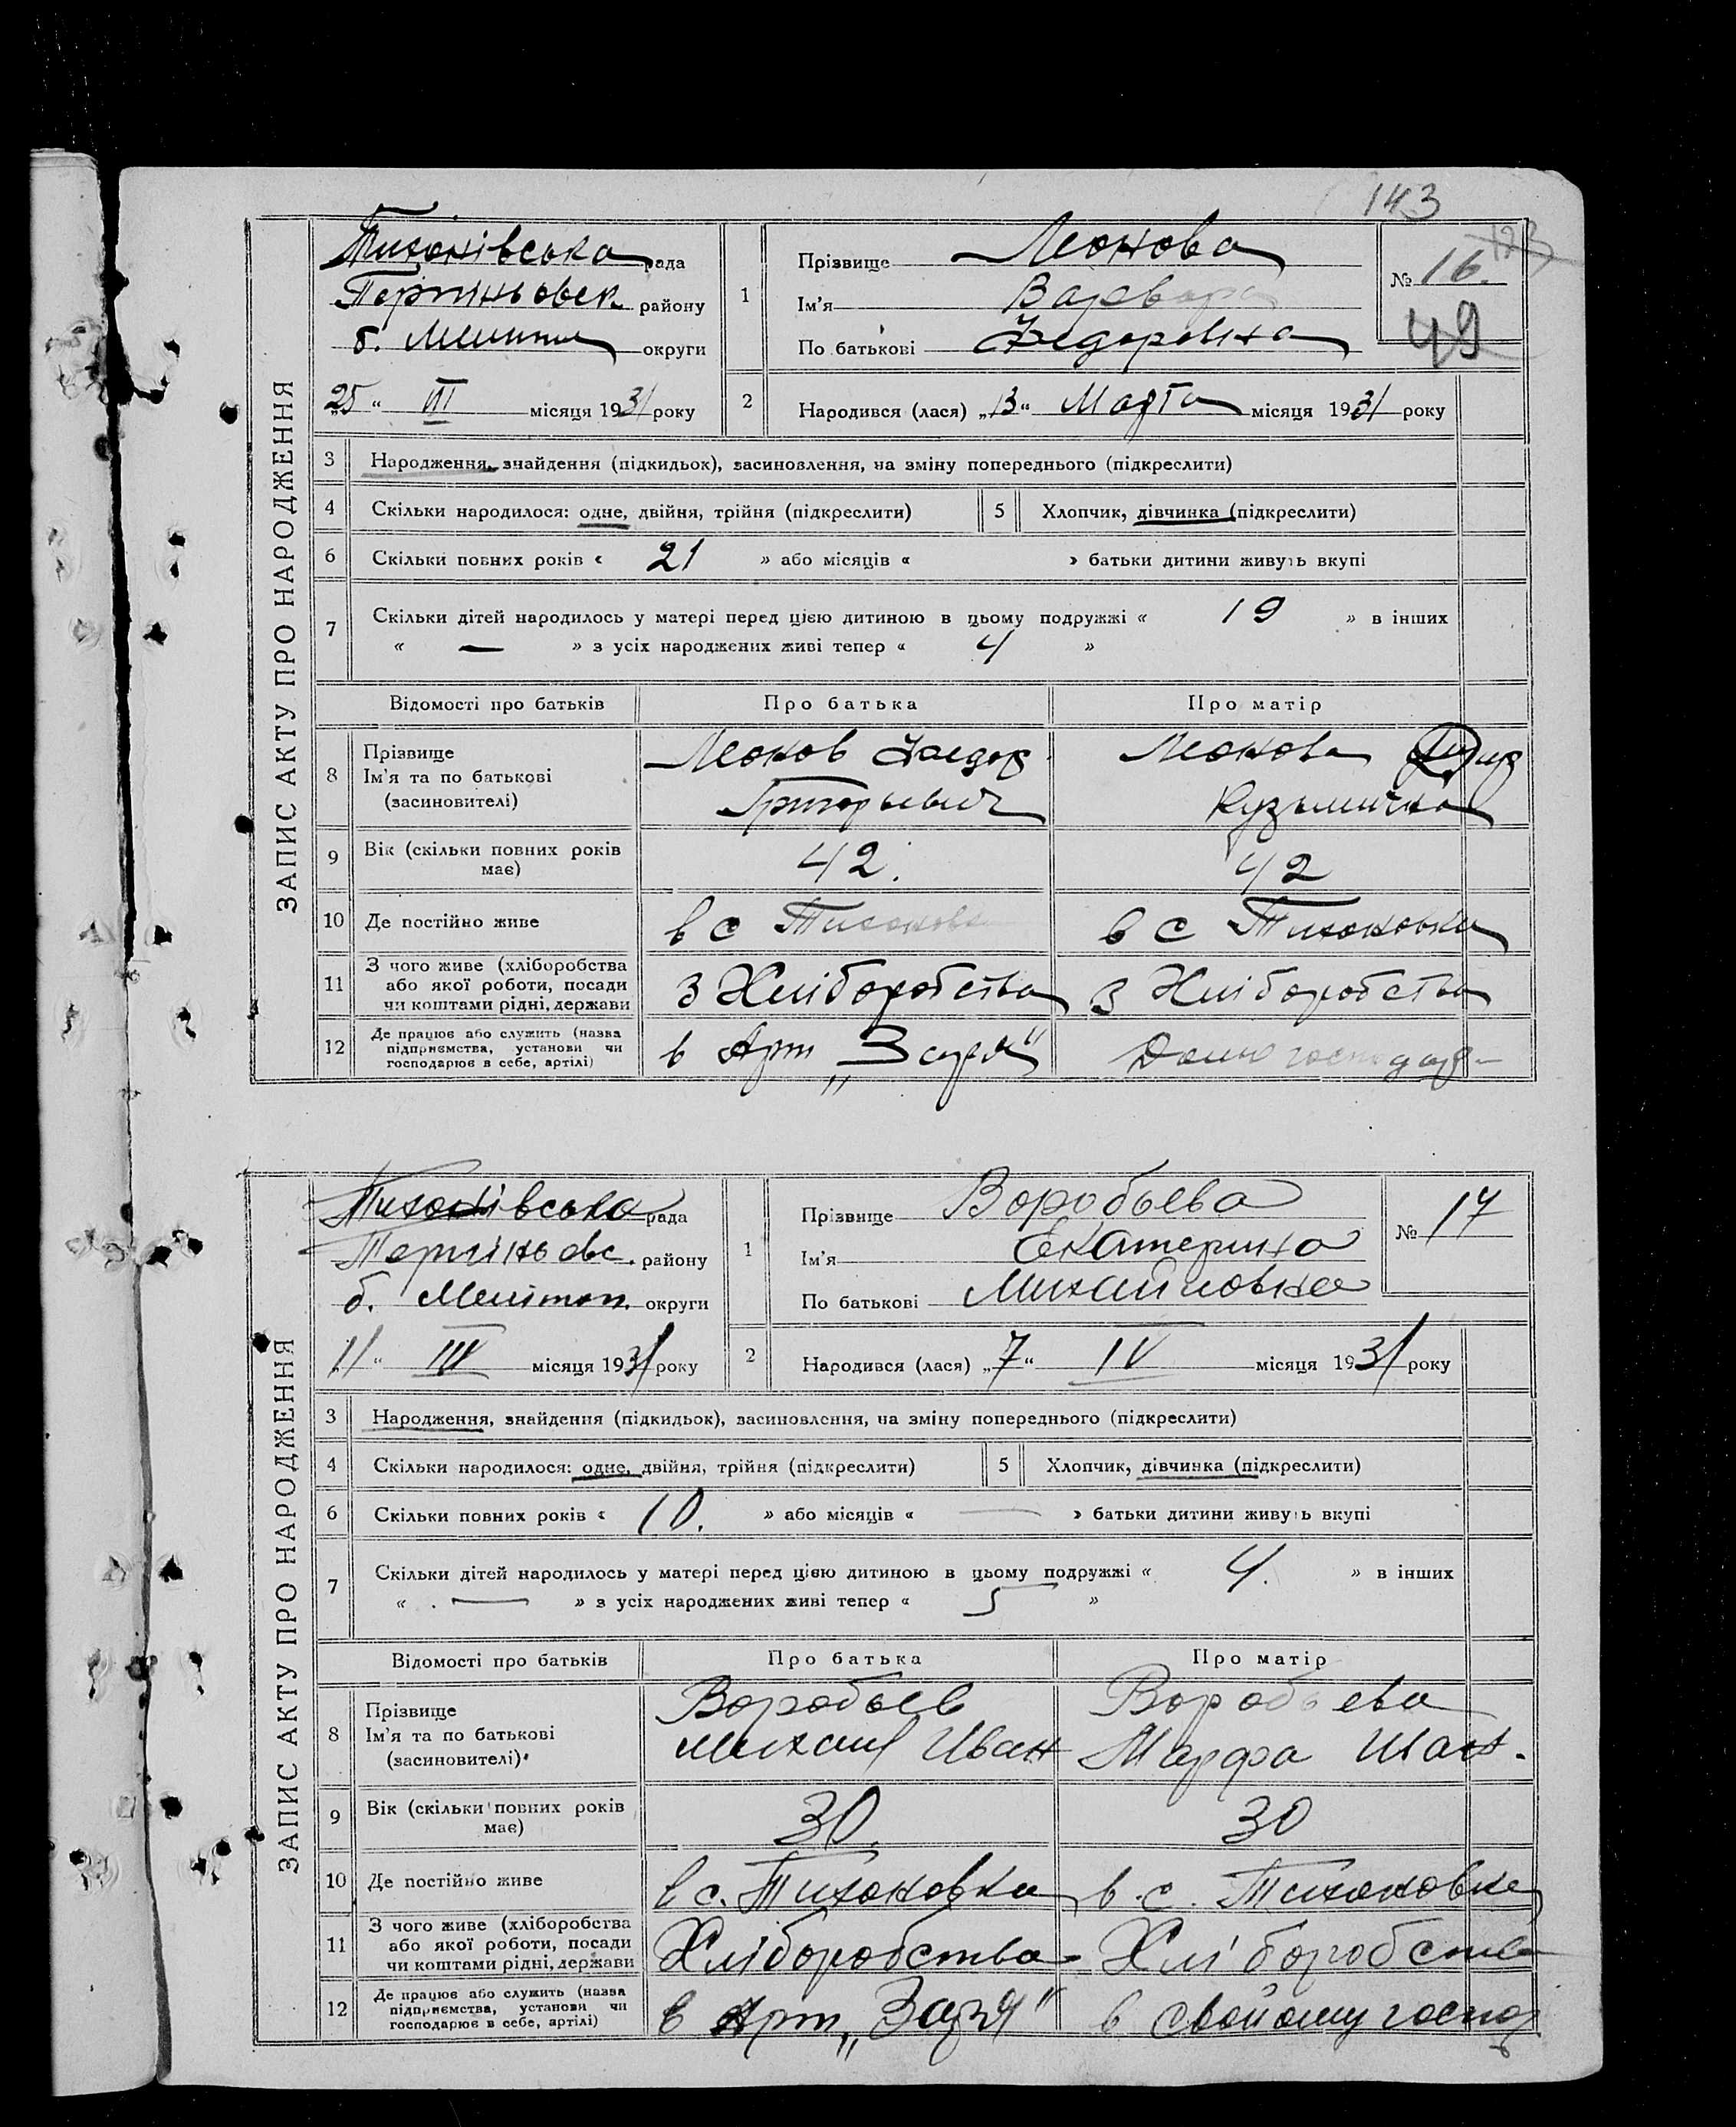 143
ЗАПИС АКТУ ПРО НАРОДЖЕННЯ
Тихонівська рада
району
б. округи
„25“ III місяця 1931 року
1
Прізвище Леонова
Ім'я Варвара
По батькові Федоровна
№ 16.
123
49
2
Народився (лася) „13“ Марта місяця 1931 року
3 Народження, знайдення (підкидьок), засиновлення, на зміну попереднього (підкреслити)
4 Скільки народилося: одне, двійня, трійня (підкреслити) 5 Хлопчик, дівчинка (підкреслити)
6 Скільки повних років « 21 » або місяців « » батьки дитини живуть вкупі
7 Скільки дітей народилось у матері перед цією дитиною в цьому подружжі « 19 » в інших
« — » з усіх народжених живі тепер « 4 »
Відомості про батьків Про батька Про матір
8 Прізвище
Ім'я та по батькові
(засиновителі)
Леонов Федор
Григорьевич
Леонова
Кузьминична
9 Вік (скільки повних років
має)
42.
42
10 Де постійно живе
в с Тихоновка
в с Тихоновка
11 З чого живе (хліборобства
або якої роботи, посади
чи коштами рідні, держави
З Хліборобства
З Хліборобства
12 Де працює або служить (назва
підприємства, установи чи
господарює в себе, артілі)
в Арт „Заря“
Дом господар
ЗАПИС АКТУ ПРО НАРОДЖЕННЯ
Тихонівська рада
району
б. Меліт��п. округи
„11“ місяця 1931 року
1
Прізвище Воробьева
Ім'я Екатерина
По батькові Михайловна
№ 17
2
Народився (лася) „7“ IV місяця 1931 року
3 Народження, знайдення (підкидьок), засиновлення, на зміну попереднього (підкреслити)
4 Скільки народилося: одне, двійня, трійня (підкреслити) 5 Хлопчик, дівчинка (підкреслити)
6 Скільки повних років « 10. » або місяців « — » батьки дитини живуть вкупі
7 Скільки дітей народилось у матері перед цією дитиною в цьому подружжі « 4. » в інших
« — » з усіх народжених живі тепер « 5 »
Відомості про батьків Про батька Про матір
8 Прізвище
Ім'я та по батькові
(засиновителі)
Воробьев
Михаил Иван
Воробьева
Марфа
9 Вік (скільки повних років
має)
30.
30
10 Де постійно живе
в с. Тихоновка
в с. Тихоновке
11 З чого живе (хліборобства
або якої роботи, посади
чи коштами рідні, держави
Хліборобства
Хліборобства
12 Де працює або служить (назва
підприємства, установи чи
господарює в себе, артілі)
в Арт „Заря“
в свойому господ